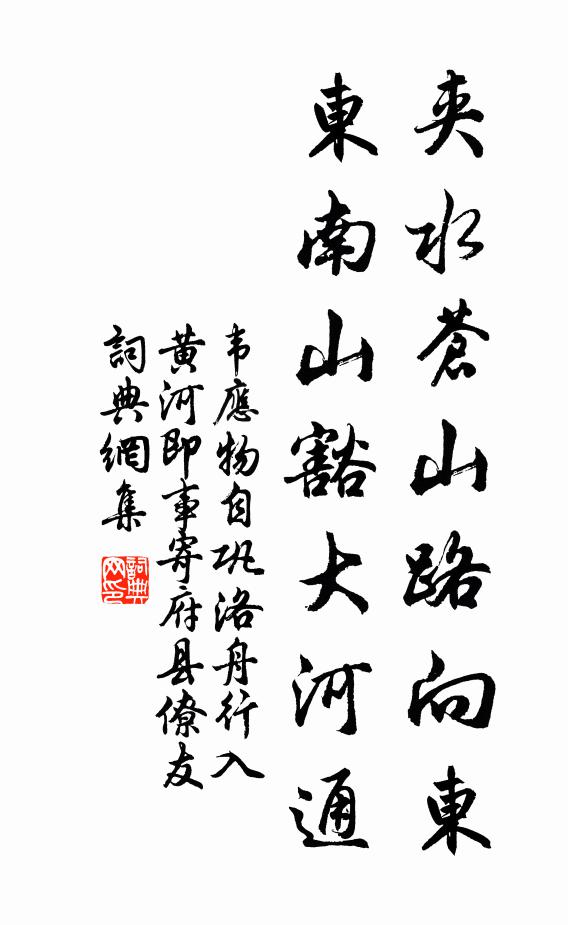 夾水蒼山路向東
東南山豁大河通
韦應物自巩洛舟行入
黄河即事寄府县僚友
詞典網集
詞典网印